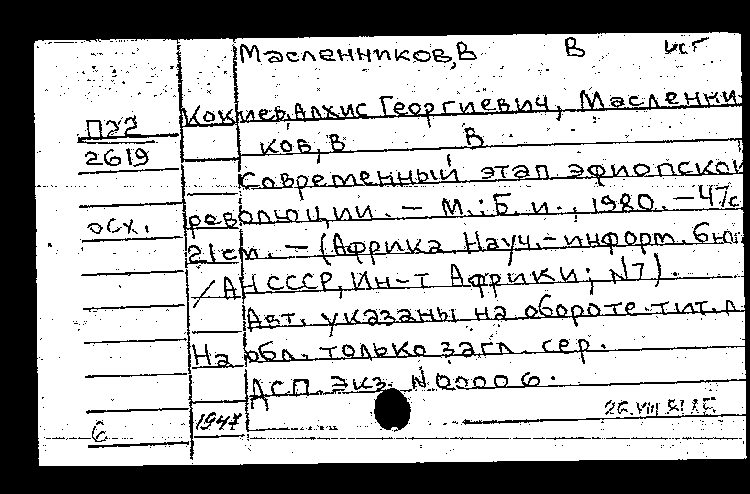 Масленников, В В ист
П22 Кокиев, Алхис Георгиевич, Масленни-
2619 ков, В В
Современный этап эфиопской
осх. революции. — М.: Б. и., 1980. — 47с
21см. — (Африка. Науч.-информ. бюл
/АН СССР, Ин-т Африки; N7).
Авт. указаны на обороте тит. л.
На обл. только загл. сер.
ДСП. Экз. N 00006.
6 1947 26.VIII 81